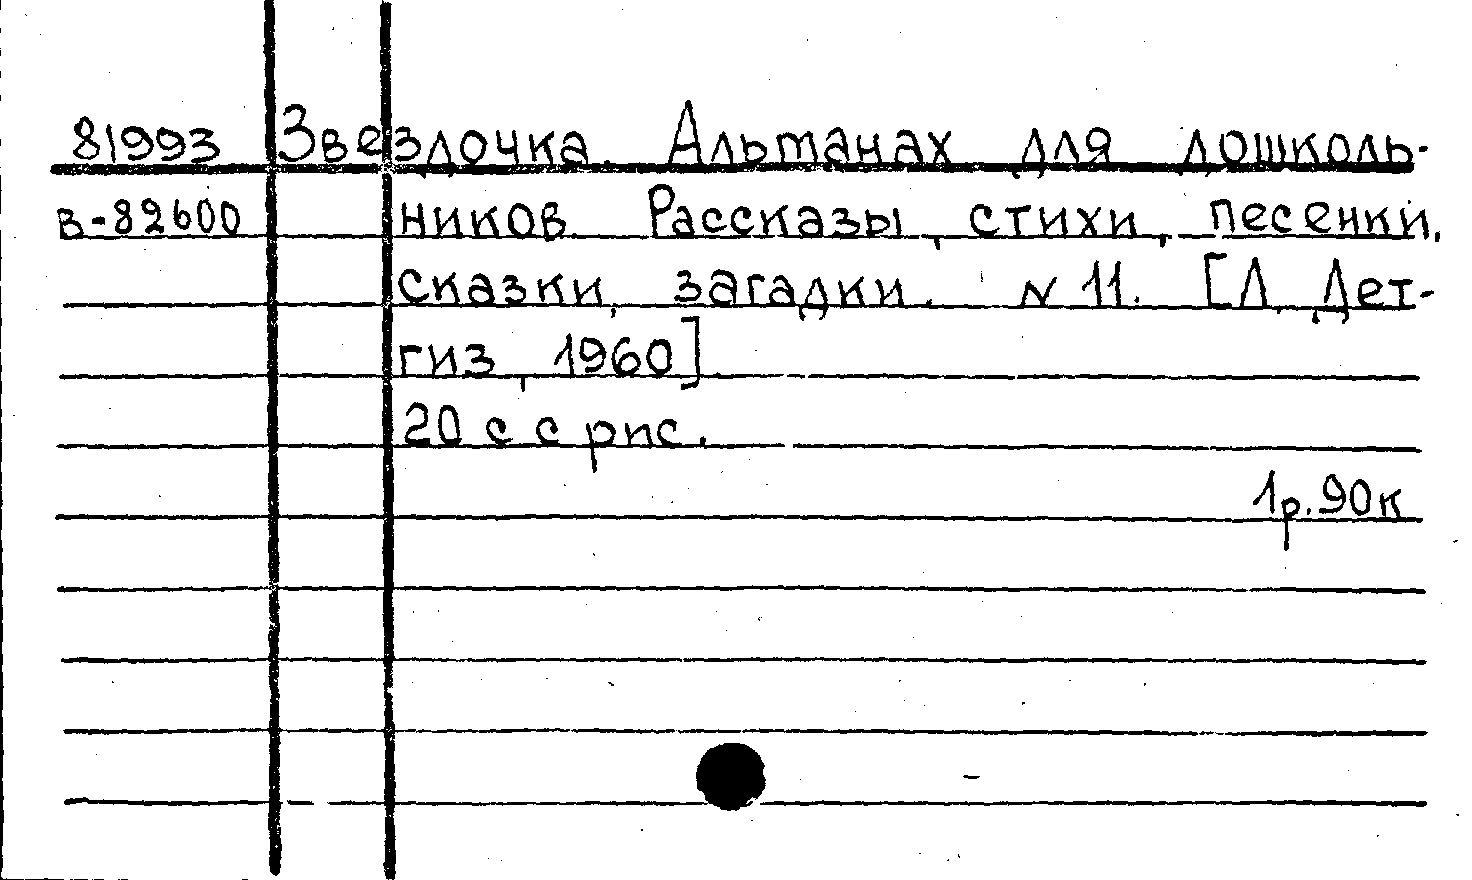 81993 Звездочка. Альманах для дошколь-
в-82600 ников. Рассказы, стихи, песенки,
сказки, загадки. N 11. [Л., Дет-
гиз, 1960].
20 с. с рис.
1р.90к